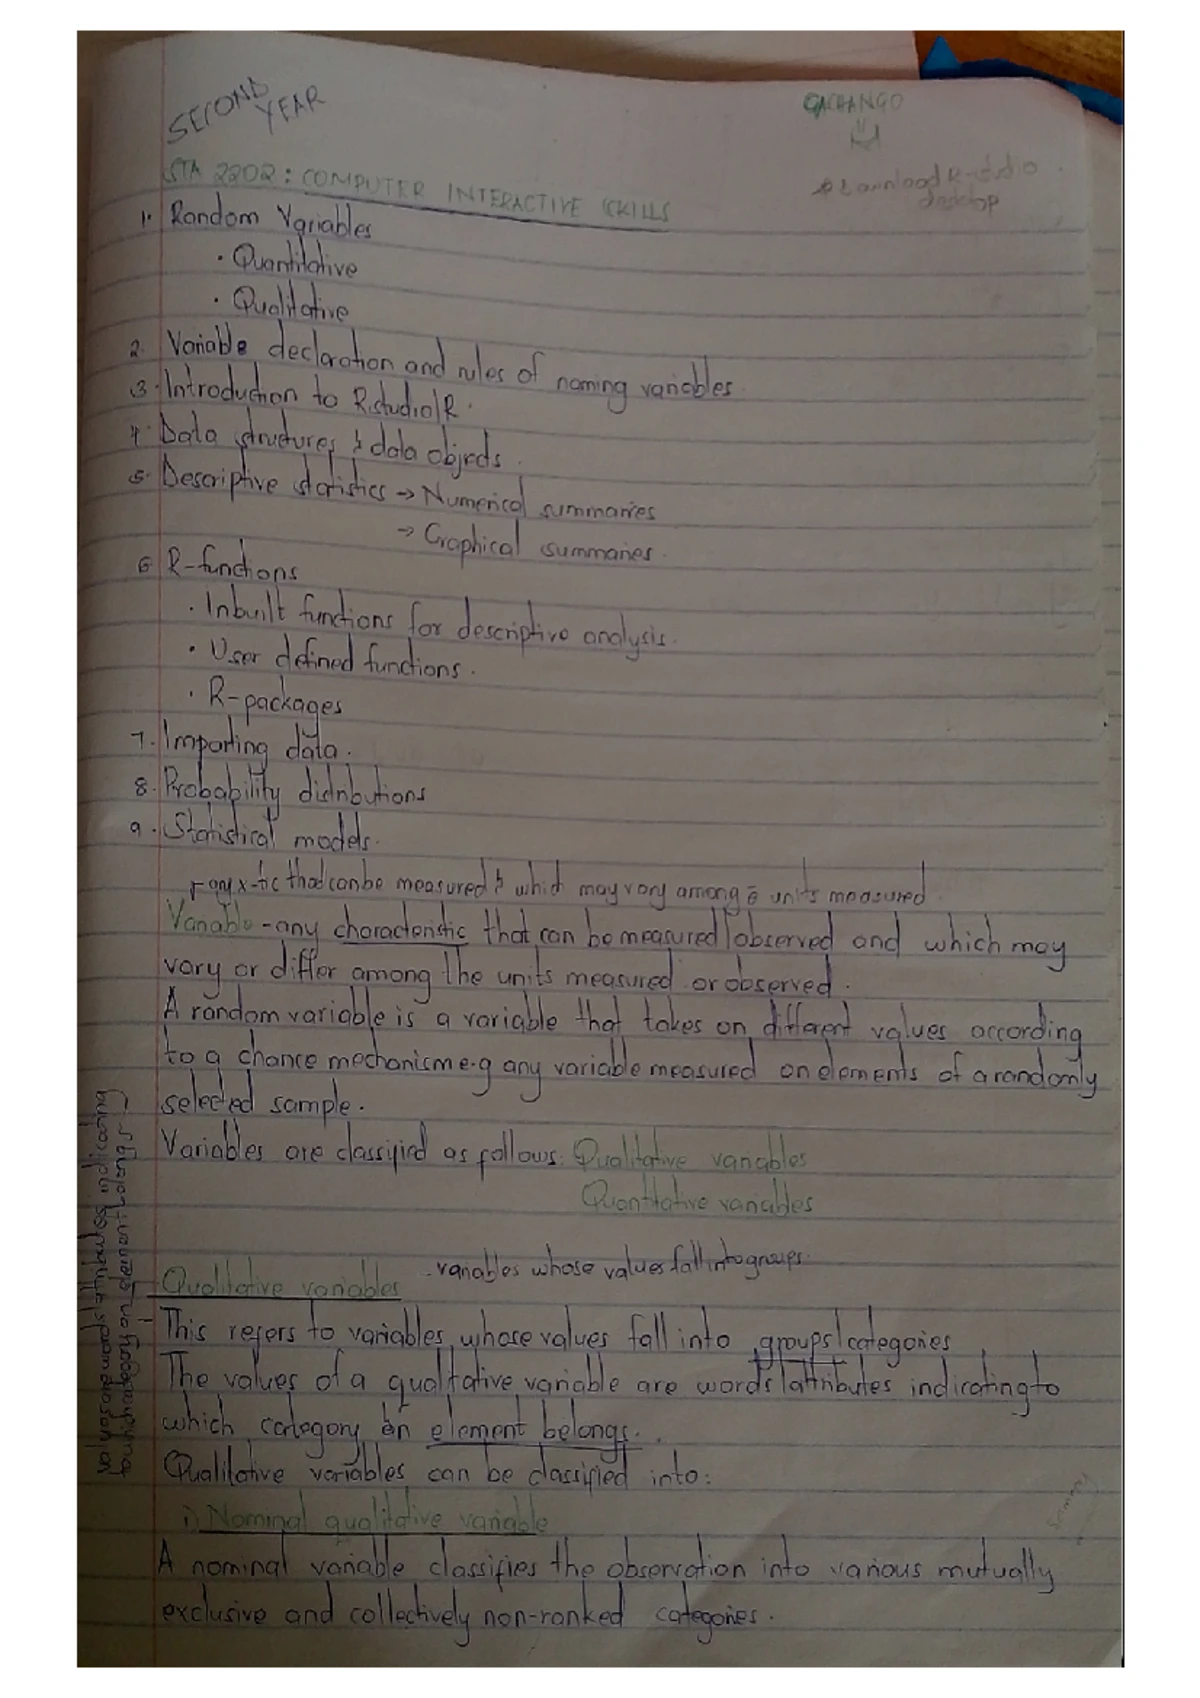 SECOND YEAR
GACHANGO
STA 2202: COMPUTER INTERACTIVE SKILLS
* Download R-studio desktop
1. Random Variables
• Quantitative
• Qualitative
2. Variable declaration and rules of naming variables.
3. Introduction to R.studio/R.
4. Data structures & data objects.
5. Descriptive statistics → Numerical summaries
→ Graphical summaries.
6 R-functions
• Inbuilt functions for descriptive analysis.
• User defined functions.
• R-packages
7. Importing data.
8. Probability distributions
9. Statistical models.
any x-tic that can be measured & which may vary among ē units measured.
Variable - any characteristic that can be measured/observed and which may
vary or differ among the units measured or observed.
A random variable is a variable that takes on different values according
to a chance mechanism e.g any variable measured on elements of a randomly
selected sample.
Variables are classified as follows: Qualitative variables
Quantitative variables
Qualitative variables - variables whose values fall into groups.
This refers to variables whose values fall into groups/categories
The values of a qualitative variable are words/attributes indicating to
which category an element belongs.
Qualitative variables can be classified into:
i) Nominal qualitative variable
A nominal variable classifies the observation into various mutually
exclusive and collectively non-ranked categories.
values are words/attributes indicating
to which category an element belongs